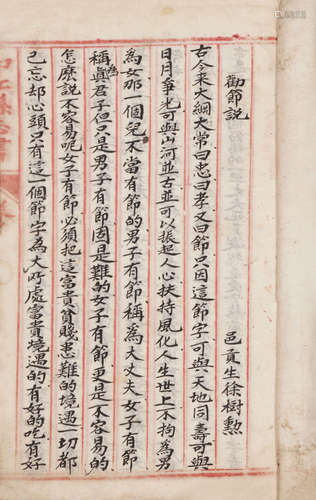 勸節說
邑貢生徐樹勲
古今來大綱大常曰忠曰孝又曰節只因這節字可與天地同壽可與
日月爭光可與山河並古並可以振起人心扶持風化人生世上不拘為男
為女那一個兒不當有節的男子有節稱為大丈夫女子有節
稱為眞君子但只是男子有節固是難的女子有節更是不容易的
怎麼說不容易呢女子有節必須把這富貴貧賤患難的境遇一切都
已忘却心頭只有這一個節字為大巧處富貴境遇的有好的吃有好